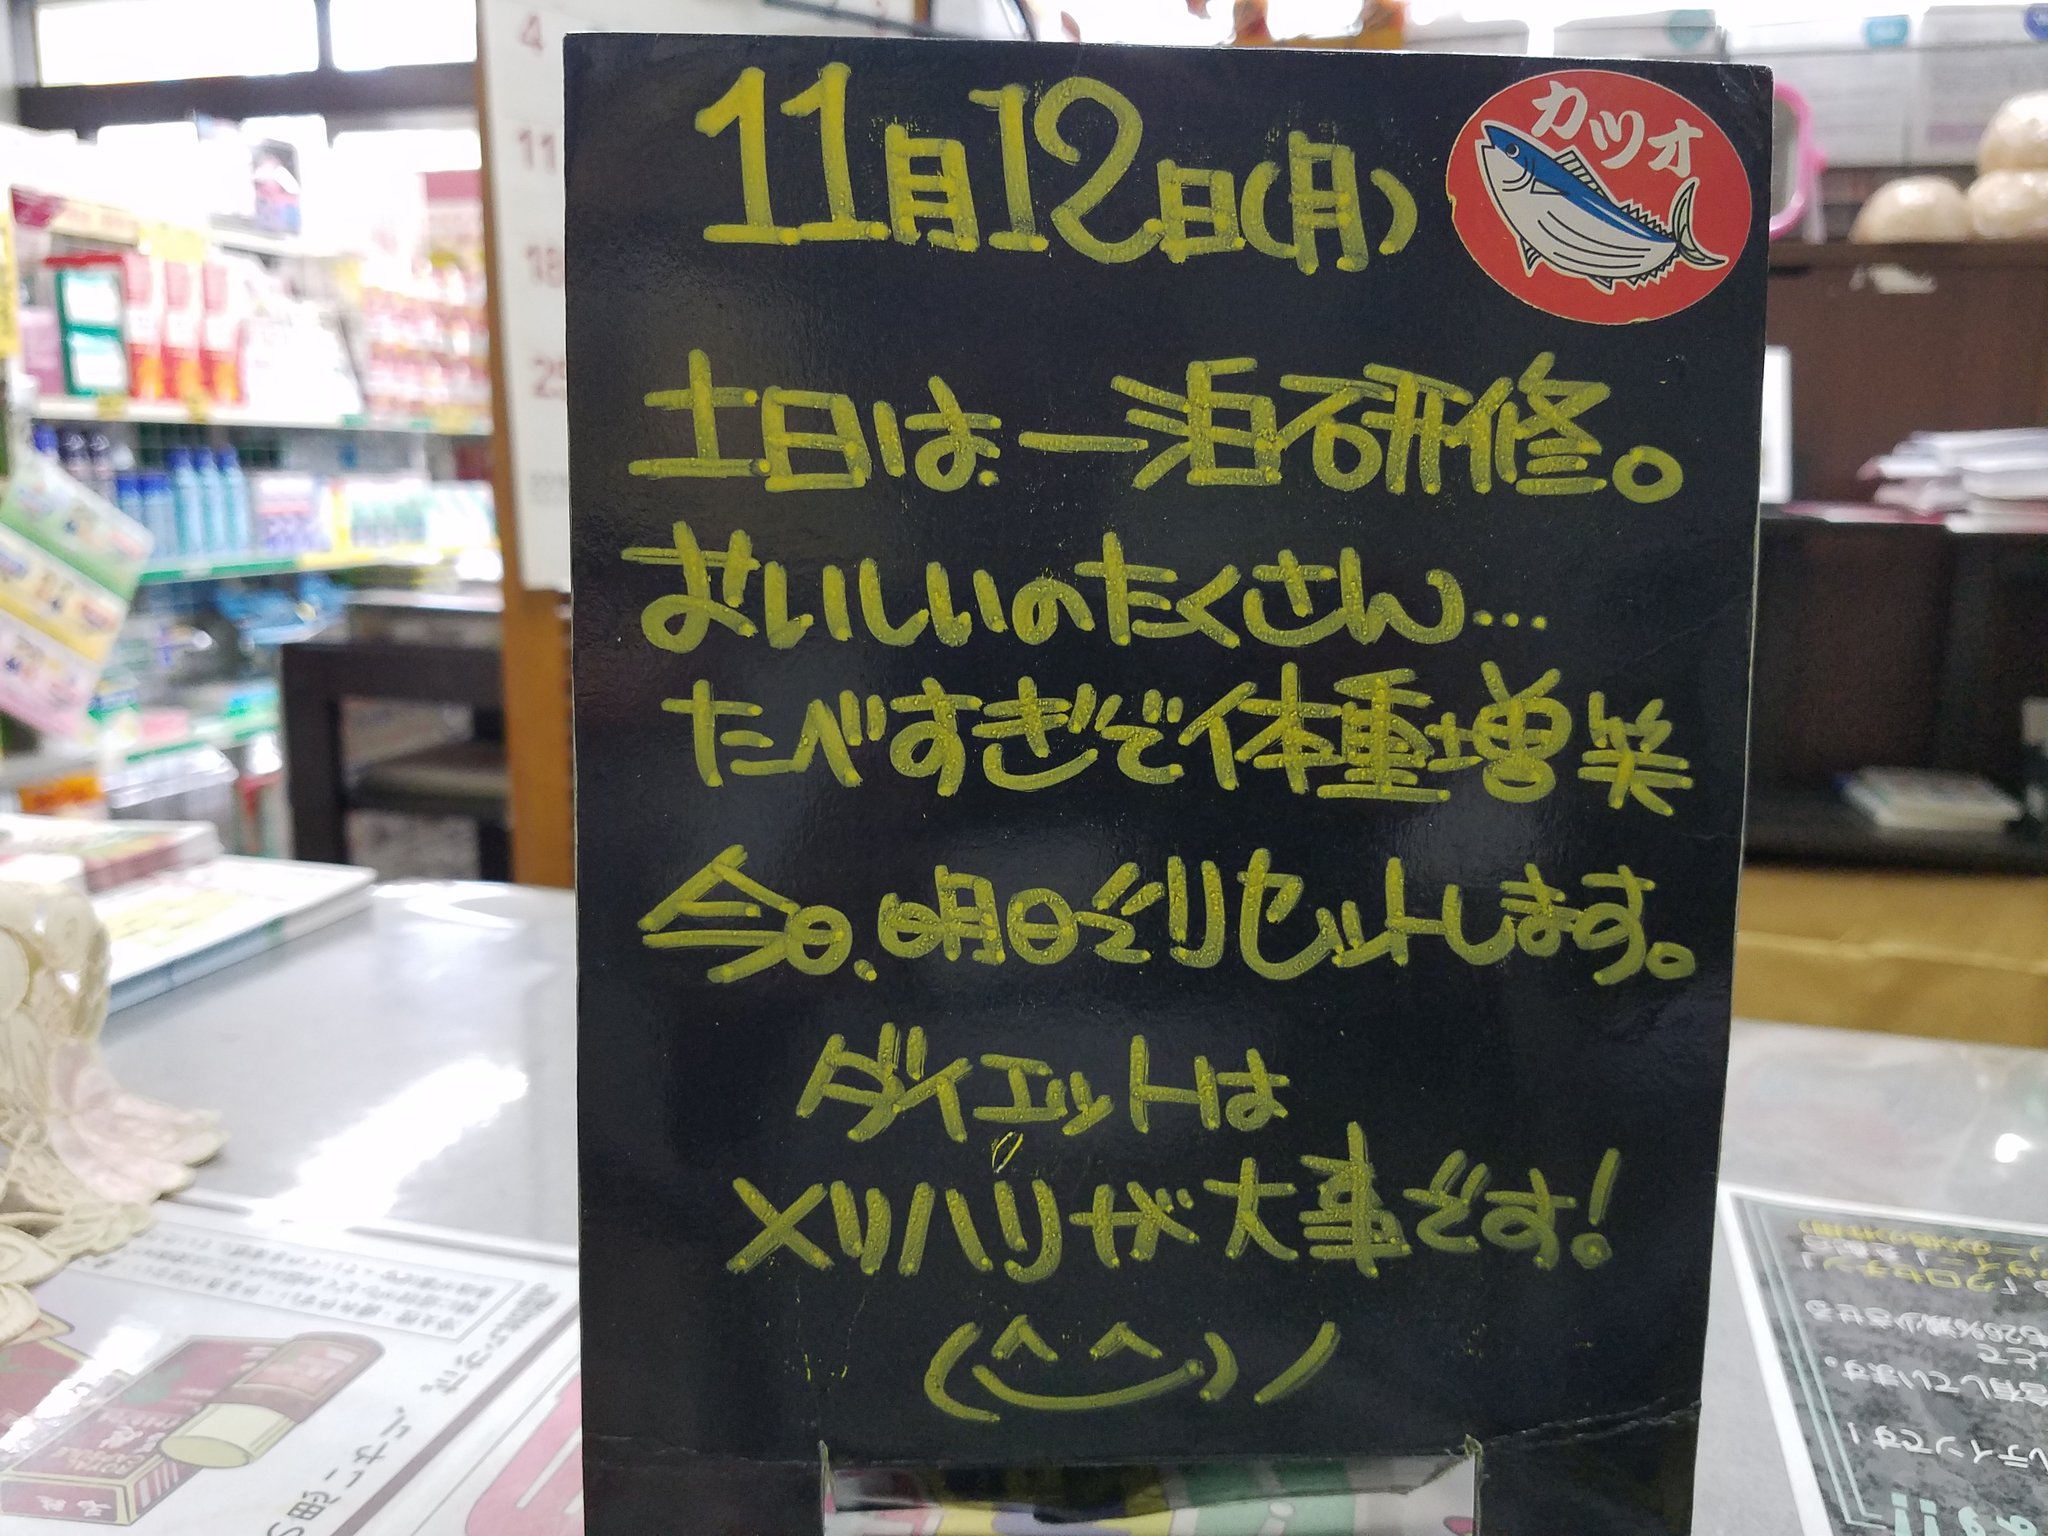 11月12日(月)
カツオ
土日は一泊研修。
おいしいのたくさん…
たべすぎで体重増笑
今日、明日でリセットします。
ダイエットは
メリハリが大事です!
(^^)ノ
4
11
18
25